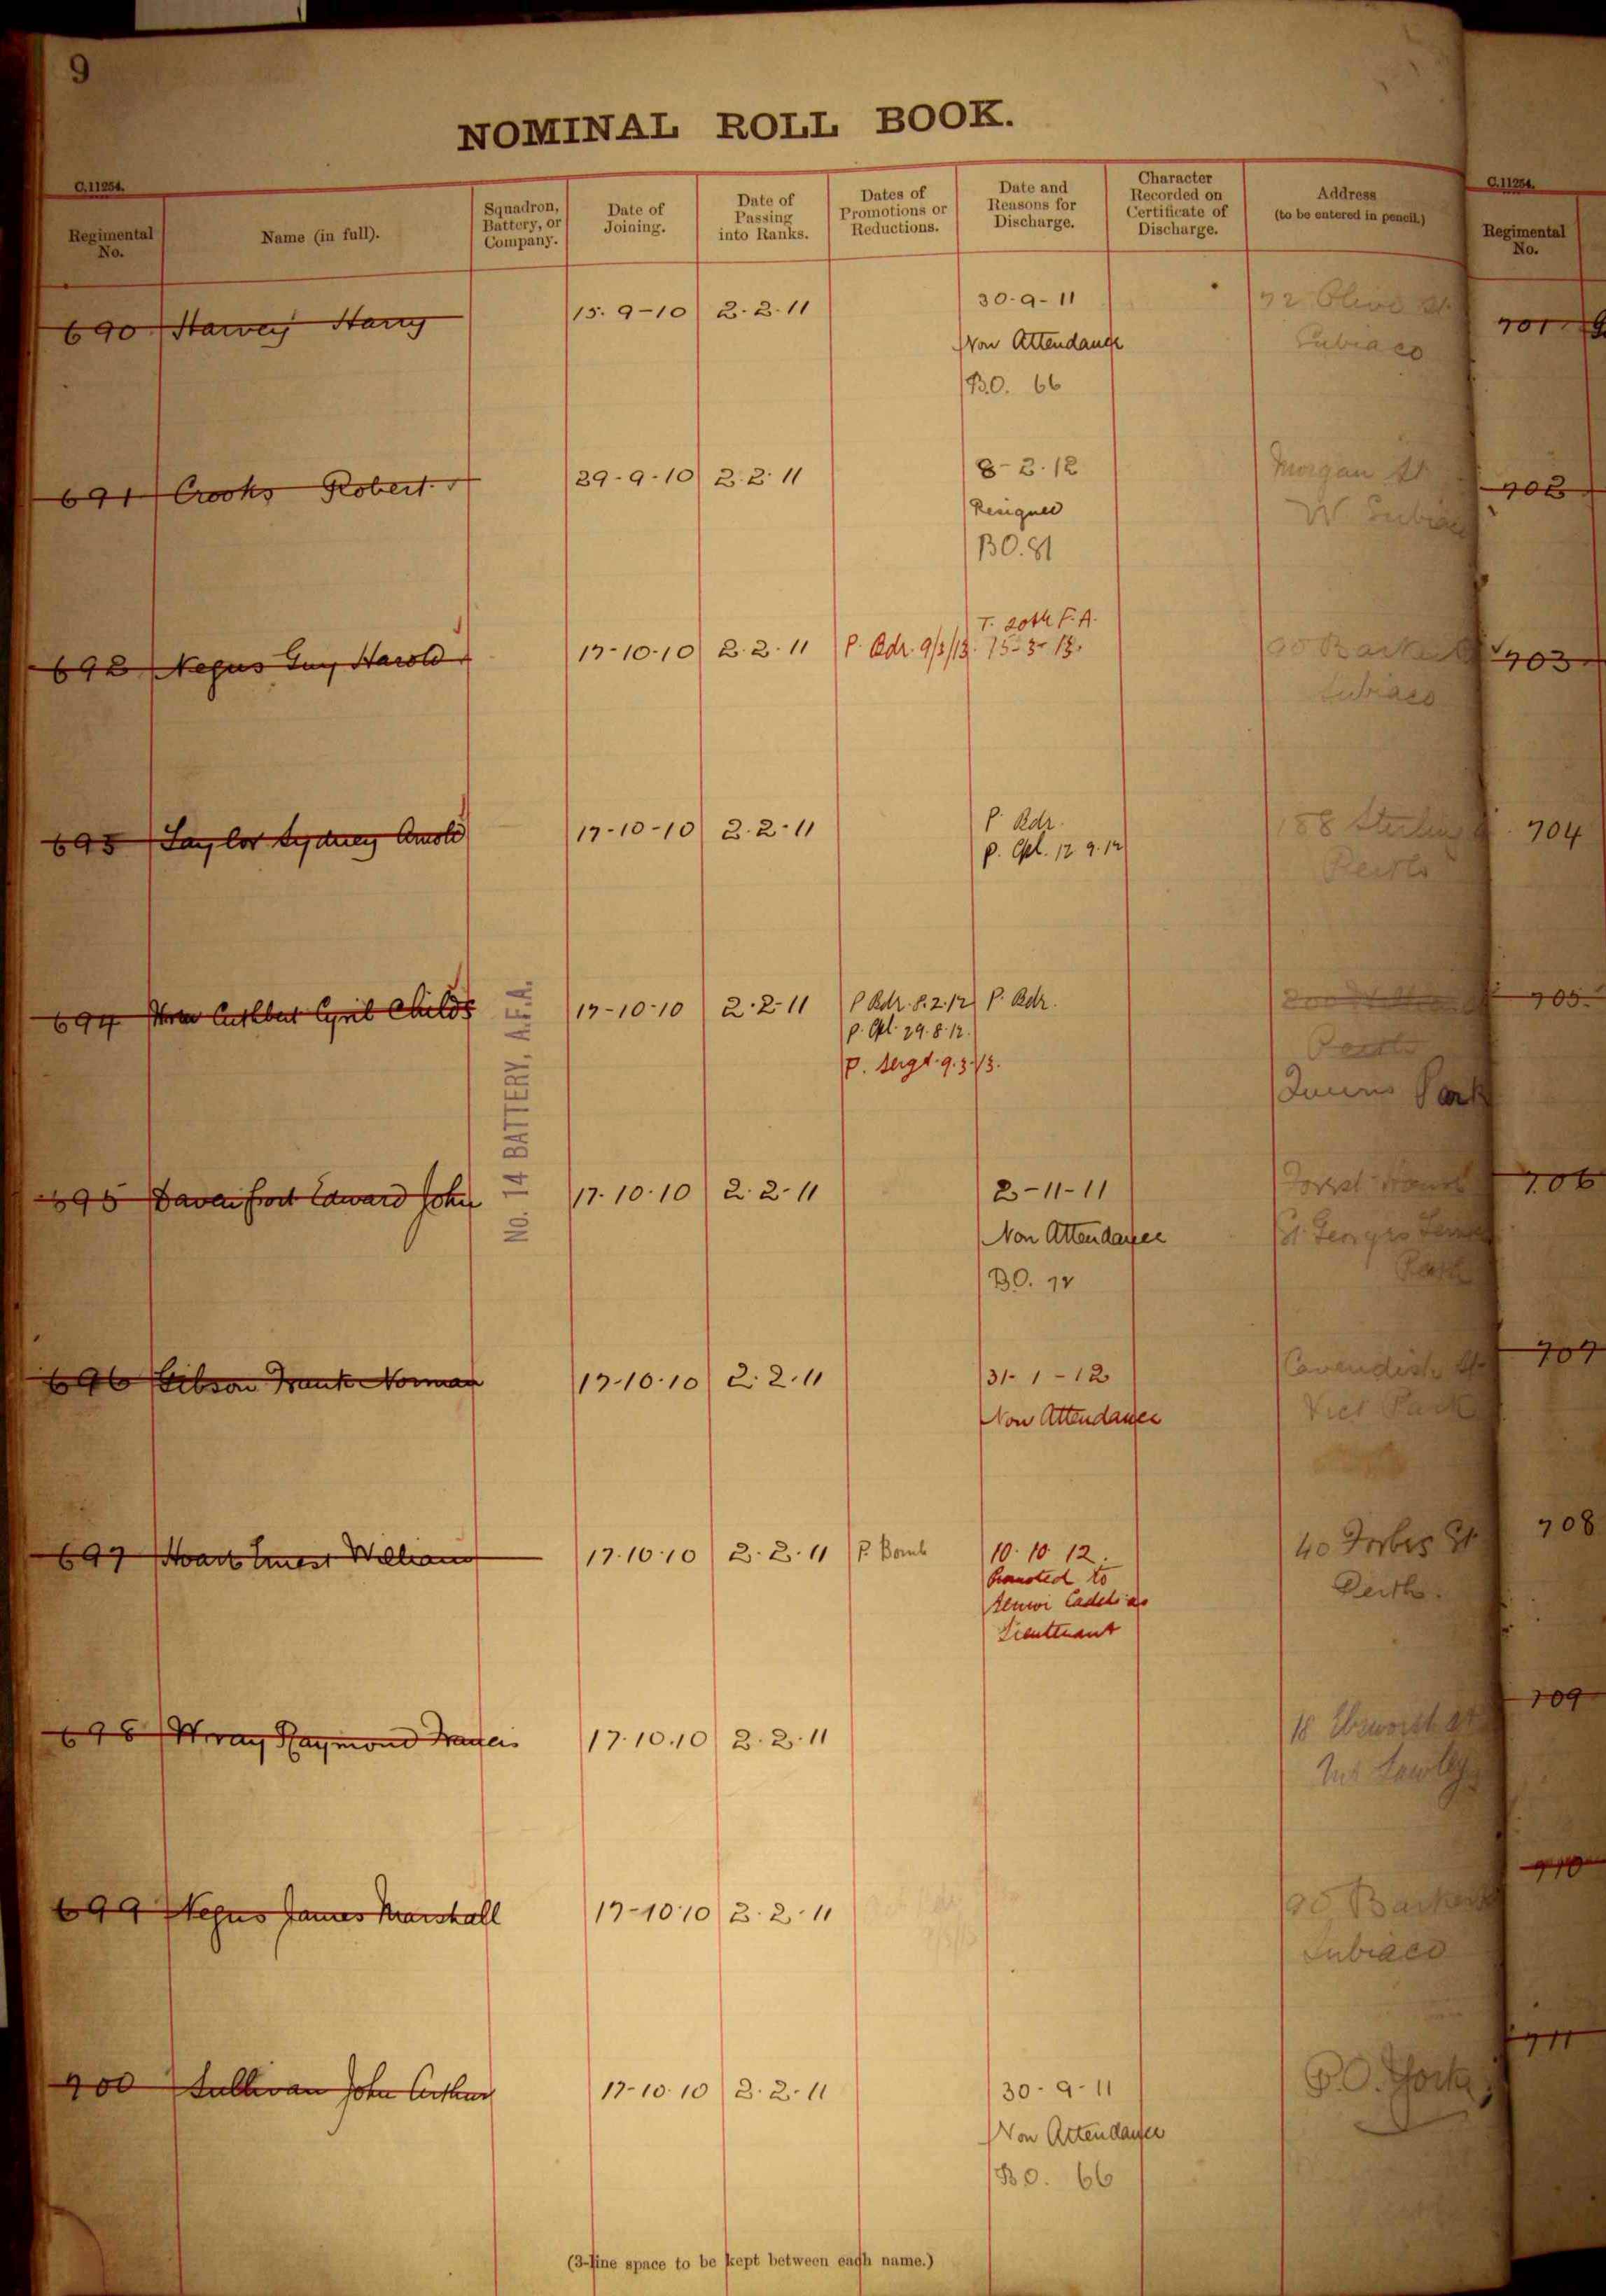 9
NOMINAL ROLL BOOK.
C.11254.
Regimental No.
Name (in full).
Squadron, Battery, or Company.
Date of Joining.
Date of Passing into Ranks.
Dates of Promotions or Reductions.
Date and Reasons for Discharge.
Character Recorded on Certificate of Discharge.
Address (to be entered in pencil.)
C.11254.
Regimental No.
690 Harvey Harry 15. 9-10 2. 2. 11 30-9-11 72 Olive St 701
Non Attendance Subiaco
B.O. 66
691 Crooks Robert 29-9-10 2. 2. 11 8-2.12 Morgan St 702
Resigned W. Subiaco
BO. 81
T. 20th F.A.
692 Negus Guy Harold 17-10-10 2. 2. 11 P. Bdr. 9/3/13. 15-3-13. 90 Barker 703
Subiaco
693 Taylor Sydney Arnold 17-10-10 2. 2-11 P. Bdr. 188 Stirling 704
P. Cpl. 12 9.12 Perth
694 Cuthbert Cyril Childs 17-10-10 2. 2-11 P Bdr. 8.2.12 P. Bdr. 705
p. Cpl. 29.8.12. Perth
P. Sergt. 9.3.13. Queens Park
No. 14 BATTERY, A.F.A.
695 Davenport Edward John 17. 10-10 2. 2-11 2-11-11 706
Non Attendance St Georges Terrace
B.O. Perth
696 Gibson Frank Norman 17-10-10 2. 2. 11 31-1-12 Cavendish St 707
Non Attendance Vict Park
697 Ernest William 17.10.10 2. 2. 11 P. Bomb 10. 10 12. 40 Forbes St 708
Promoted to Perth.
Senior Cadets as
Lieutenant
698 Wray Raymond Francis 17.10.10 2. 2. 11 18 St 709
Mt Lawley
699 Negus James Marshall 17-10 10 2. 2. 11 90 Barker 710
Subiaco
700 Sullivan John Arthur 17-10.10 2. 2. 11 30-9-11 P.O. York 711
Non Attendance
BO. 66
(3-line space to be kept between each name.)